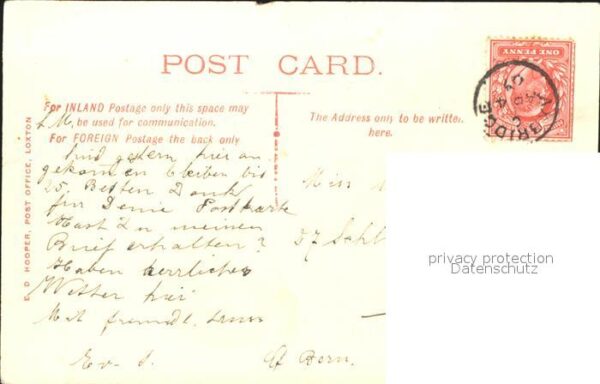 POST CARD.
For INLAND Postage only this space may
be used for communication.
For FOREIGN Postage the back only
The Address only to be written
here.
E. D HOOPER, POST OFFICE, LOXTON
L M.
Sind gestern hier an
gekommen bleiben bis
25. Besten Dank
für Deine Postkarte
Hast Du meinen
Brief erhalten?
Haben herrliches
Wetter hier
Mit freundl.
Miss
57
Bern.
ONE PENNY
BRIDGE
privacy protection
Datenschutz